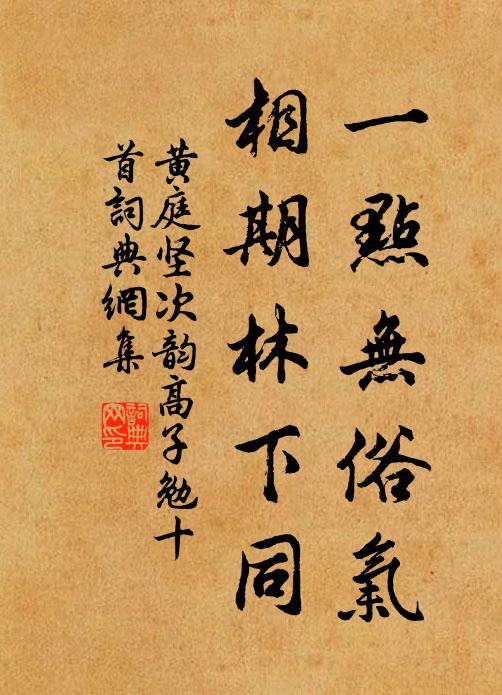 一點無俗氣
相期林下同
黃庭坚次韵高子勉十
首詞典網集
詞典網印